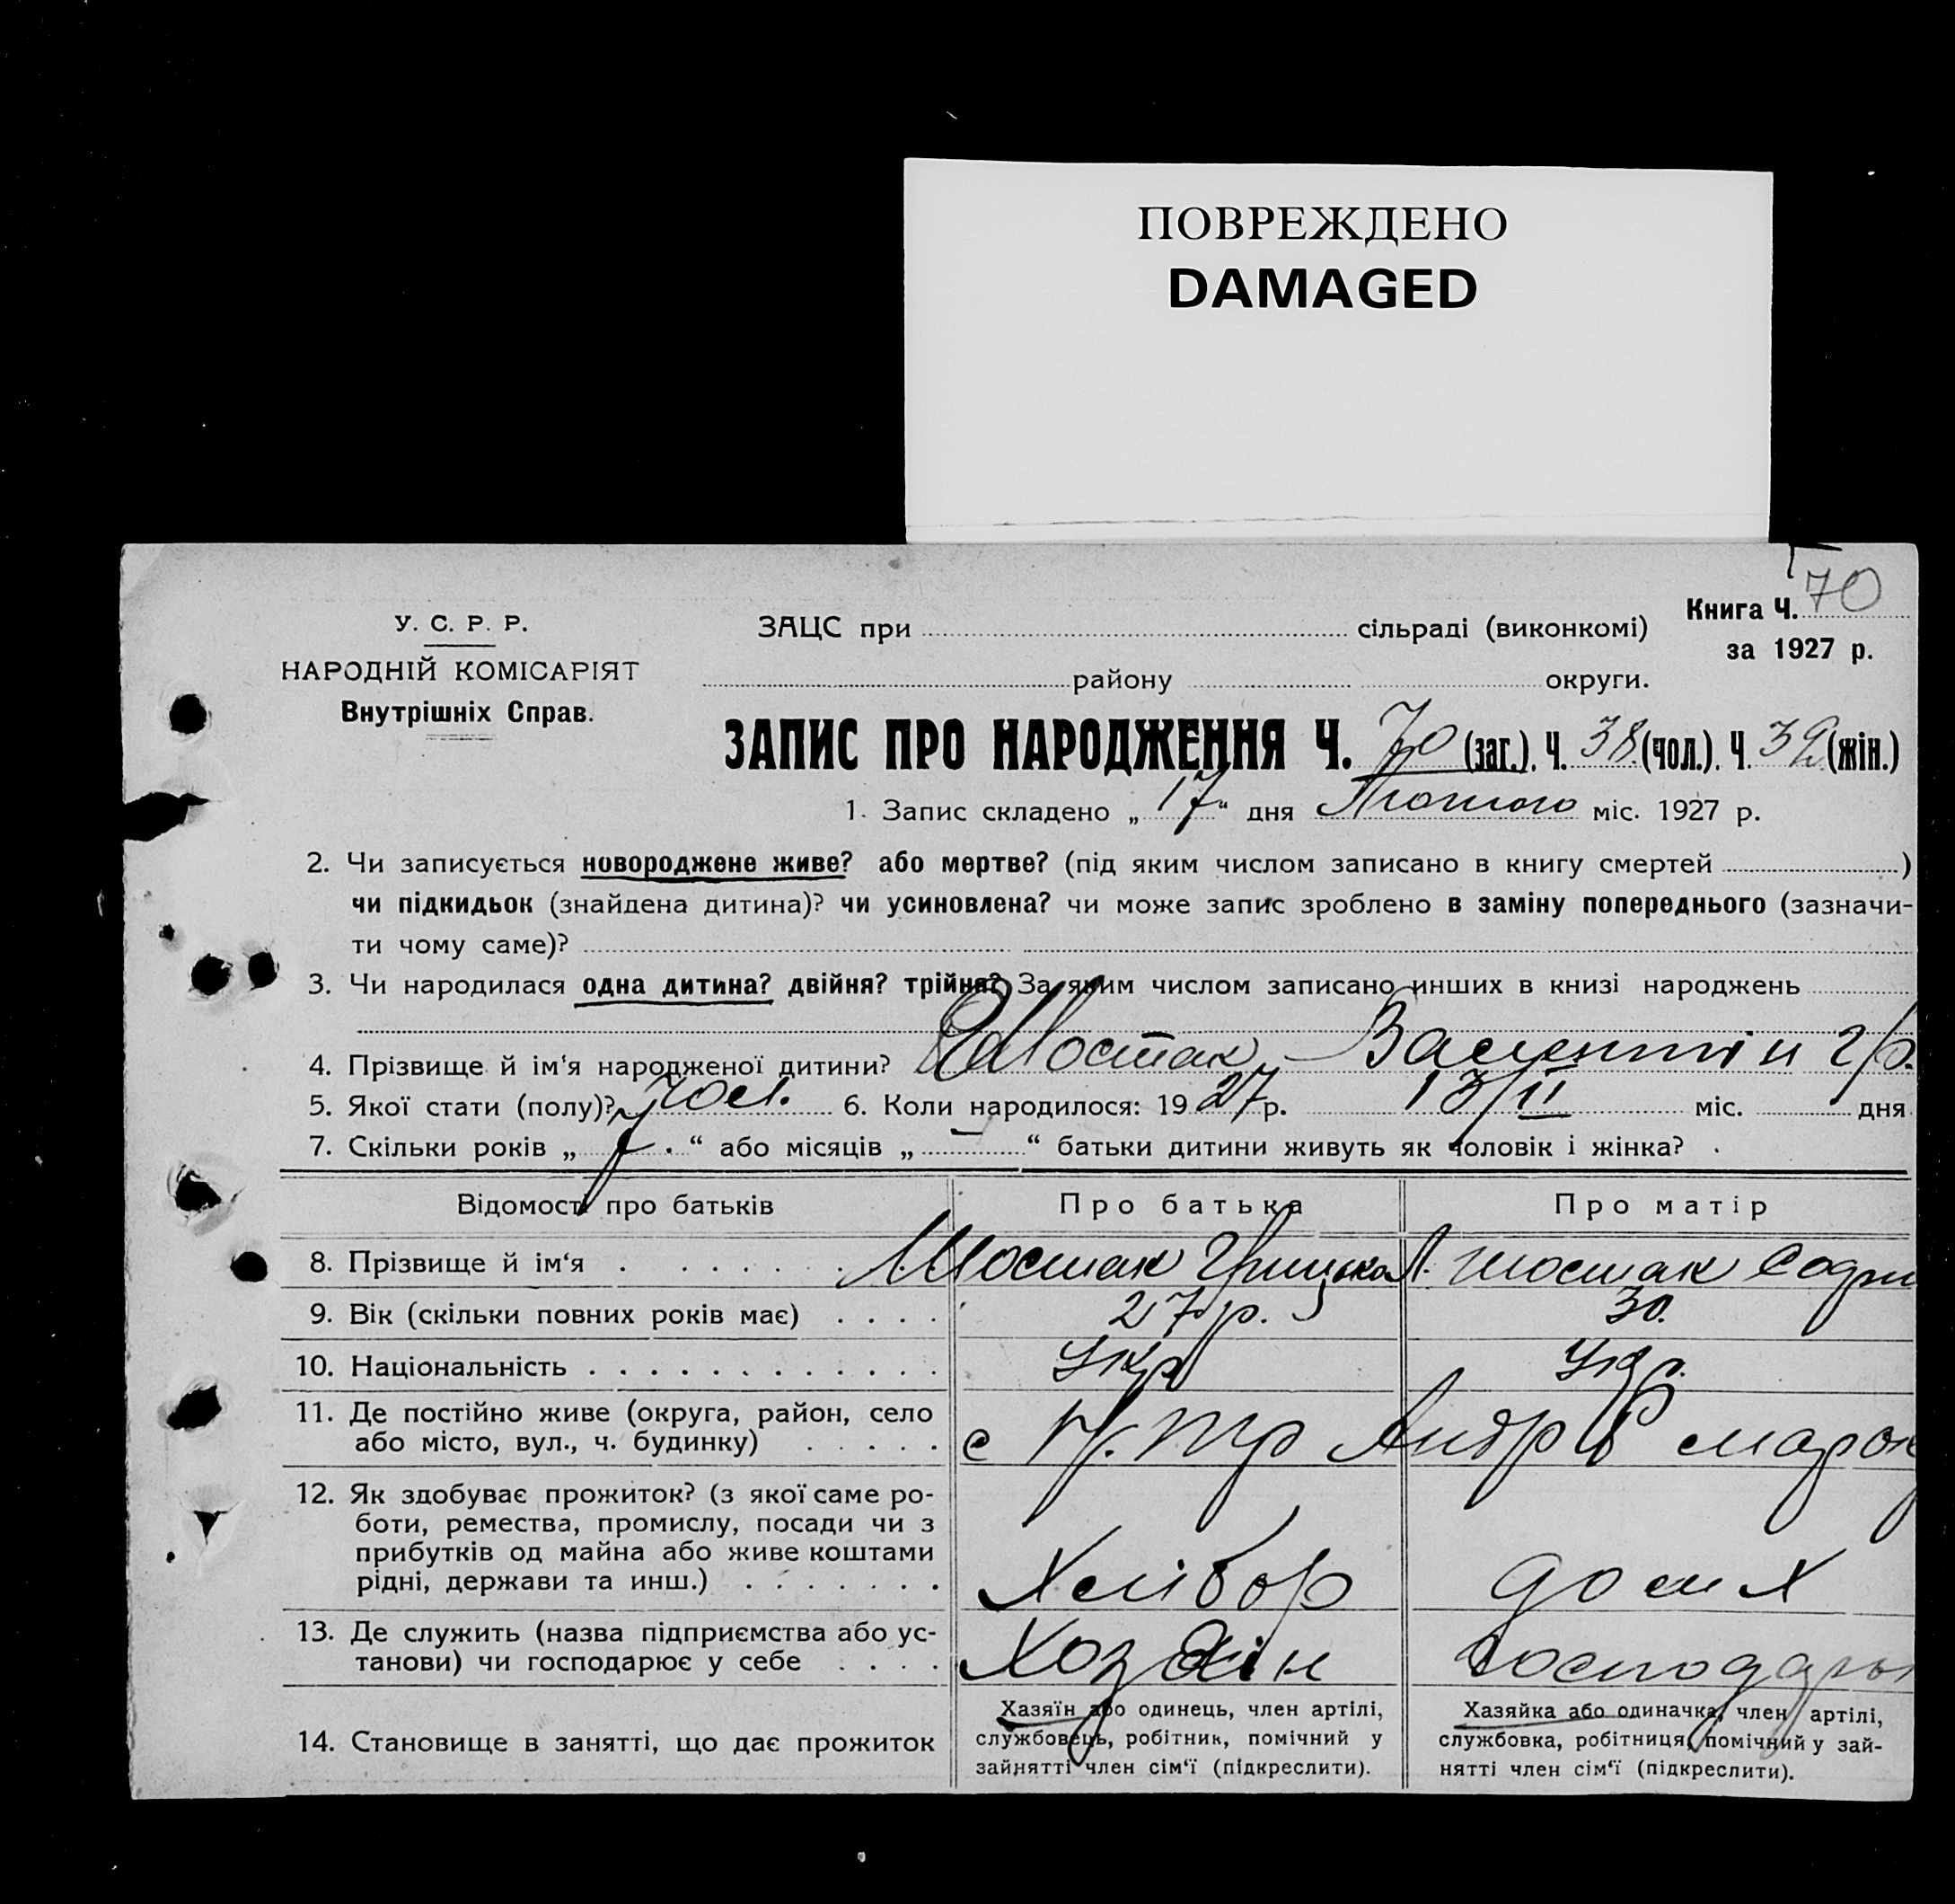 ПОВРЕЖДЕНО
DAMAGED
70
Книга Ч.
У. С. Р. Р.
ЗАЦС при сільраді (виконкомі)
за 1927 р.
НАРОДНІЙ КОМІСАРІЯТ
району округи.
Внутрішніх Справ.
ЗАПИС ПРО НАРОДЖЕННЯ Ч. 70 (заг.). Ч. 38 (чол.). Ч. 39 (жін.)
1. Запис складено „ 17 “ дня Лютого міс. 1927 р.
2. Чи записується новороджене живе? або мертве? (під яким числом записано в книгу смертей )
чи підкидьок (знайдена дитина)? чи усиновлена? чи може запис зроблено в заміну попереднього (зазначи-
ти чому саме)?
3. Чи народилася одна дитина? двійня? трійня? За яким числом записано инших в книзі народжень
4. Прізвище й ім'я народженої дитини? Шостак Валентін Гр.
5. Якої стати (полу)? чол. 6. Коли народилося: 1927 р. 13/II міс. дня
7. Скільки років „ 7. “ або місяців „ — “ батьки дитини живуть як чоловік і жінка?
Відомості про батьків Про батька Про матір
8. Прізвище й ім‘я Шостак Грицько Л. Шостак
9. Вік (скільки повних років має) 27 р. 30.
10. Національність Укр Укр.
11. Де постійно живе (округа, район, село
або місто, вул., ч. будинку) с
12. Як здобуває прожиток? (з якої саме ро-
боти, ремества, промислу, посади чи з
прибутків од майна або живе коштами
рідні, держави та инш.) Хлібор дом х
13. Де служить (назва підприємства або ус-
танови) чи господарює у себе Хозяін
14. Становище в занятті, що дає прожиток
Хазяїн або одинець, член артілі,
службовець, робітник, помічний у
зайнятті член сім‘ї (підкреслити).
Хазяйка або одиначка, член артілі,
службовка, робітниця, помічний у зай-
нятті член сім‘ї (підкреслити).